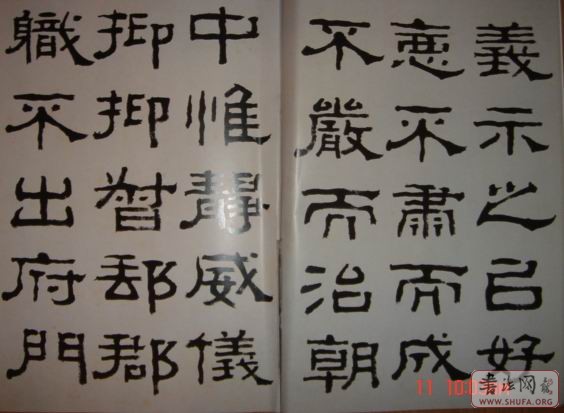 義示之以好
惡不肅而成
不嚴而治朝
中惟靜威儀
抑抑督郵郡
職不出府門
书法网
WWW.SHUFA.ORG